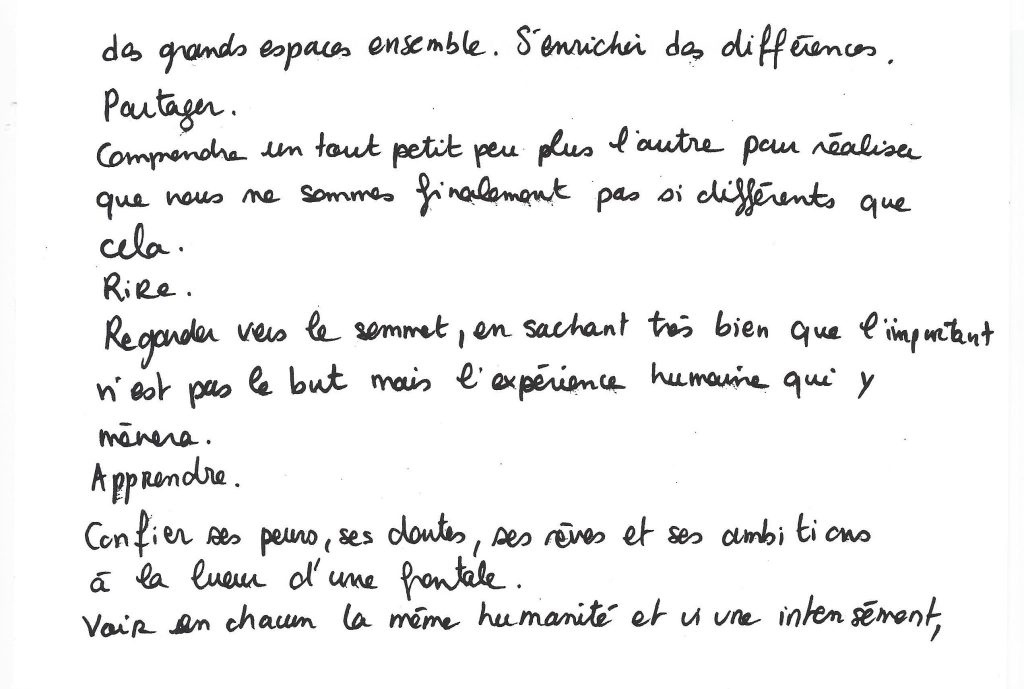 des grands espaces ensemble. S'enrichir des différences.
Partager.
Comprendre un tout petit peu plus l'autre pour réaliser
que nous ne sommes finalement pas si différents que
cela.
Rire.
Regarder vers le sommet, en sachant très bien que l'important
n'est pas le but mais l'expérience humaine qui y
mènera.
Apprendre.
Confier ses peurs, ses doutes, ses rêves et ses ambitions
à la lueur d'une frontale.
Voir en chacun la même humanité et vivre intensément,